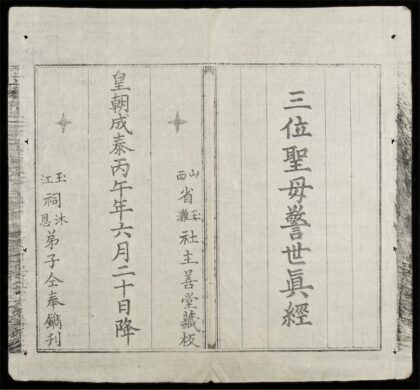 三位聖母警世眞經
山西省玉灘社主善堂藏板
皇朝成泰丙午年六月二十日降
玉江祠沐恩弟子仝奉鐫刊